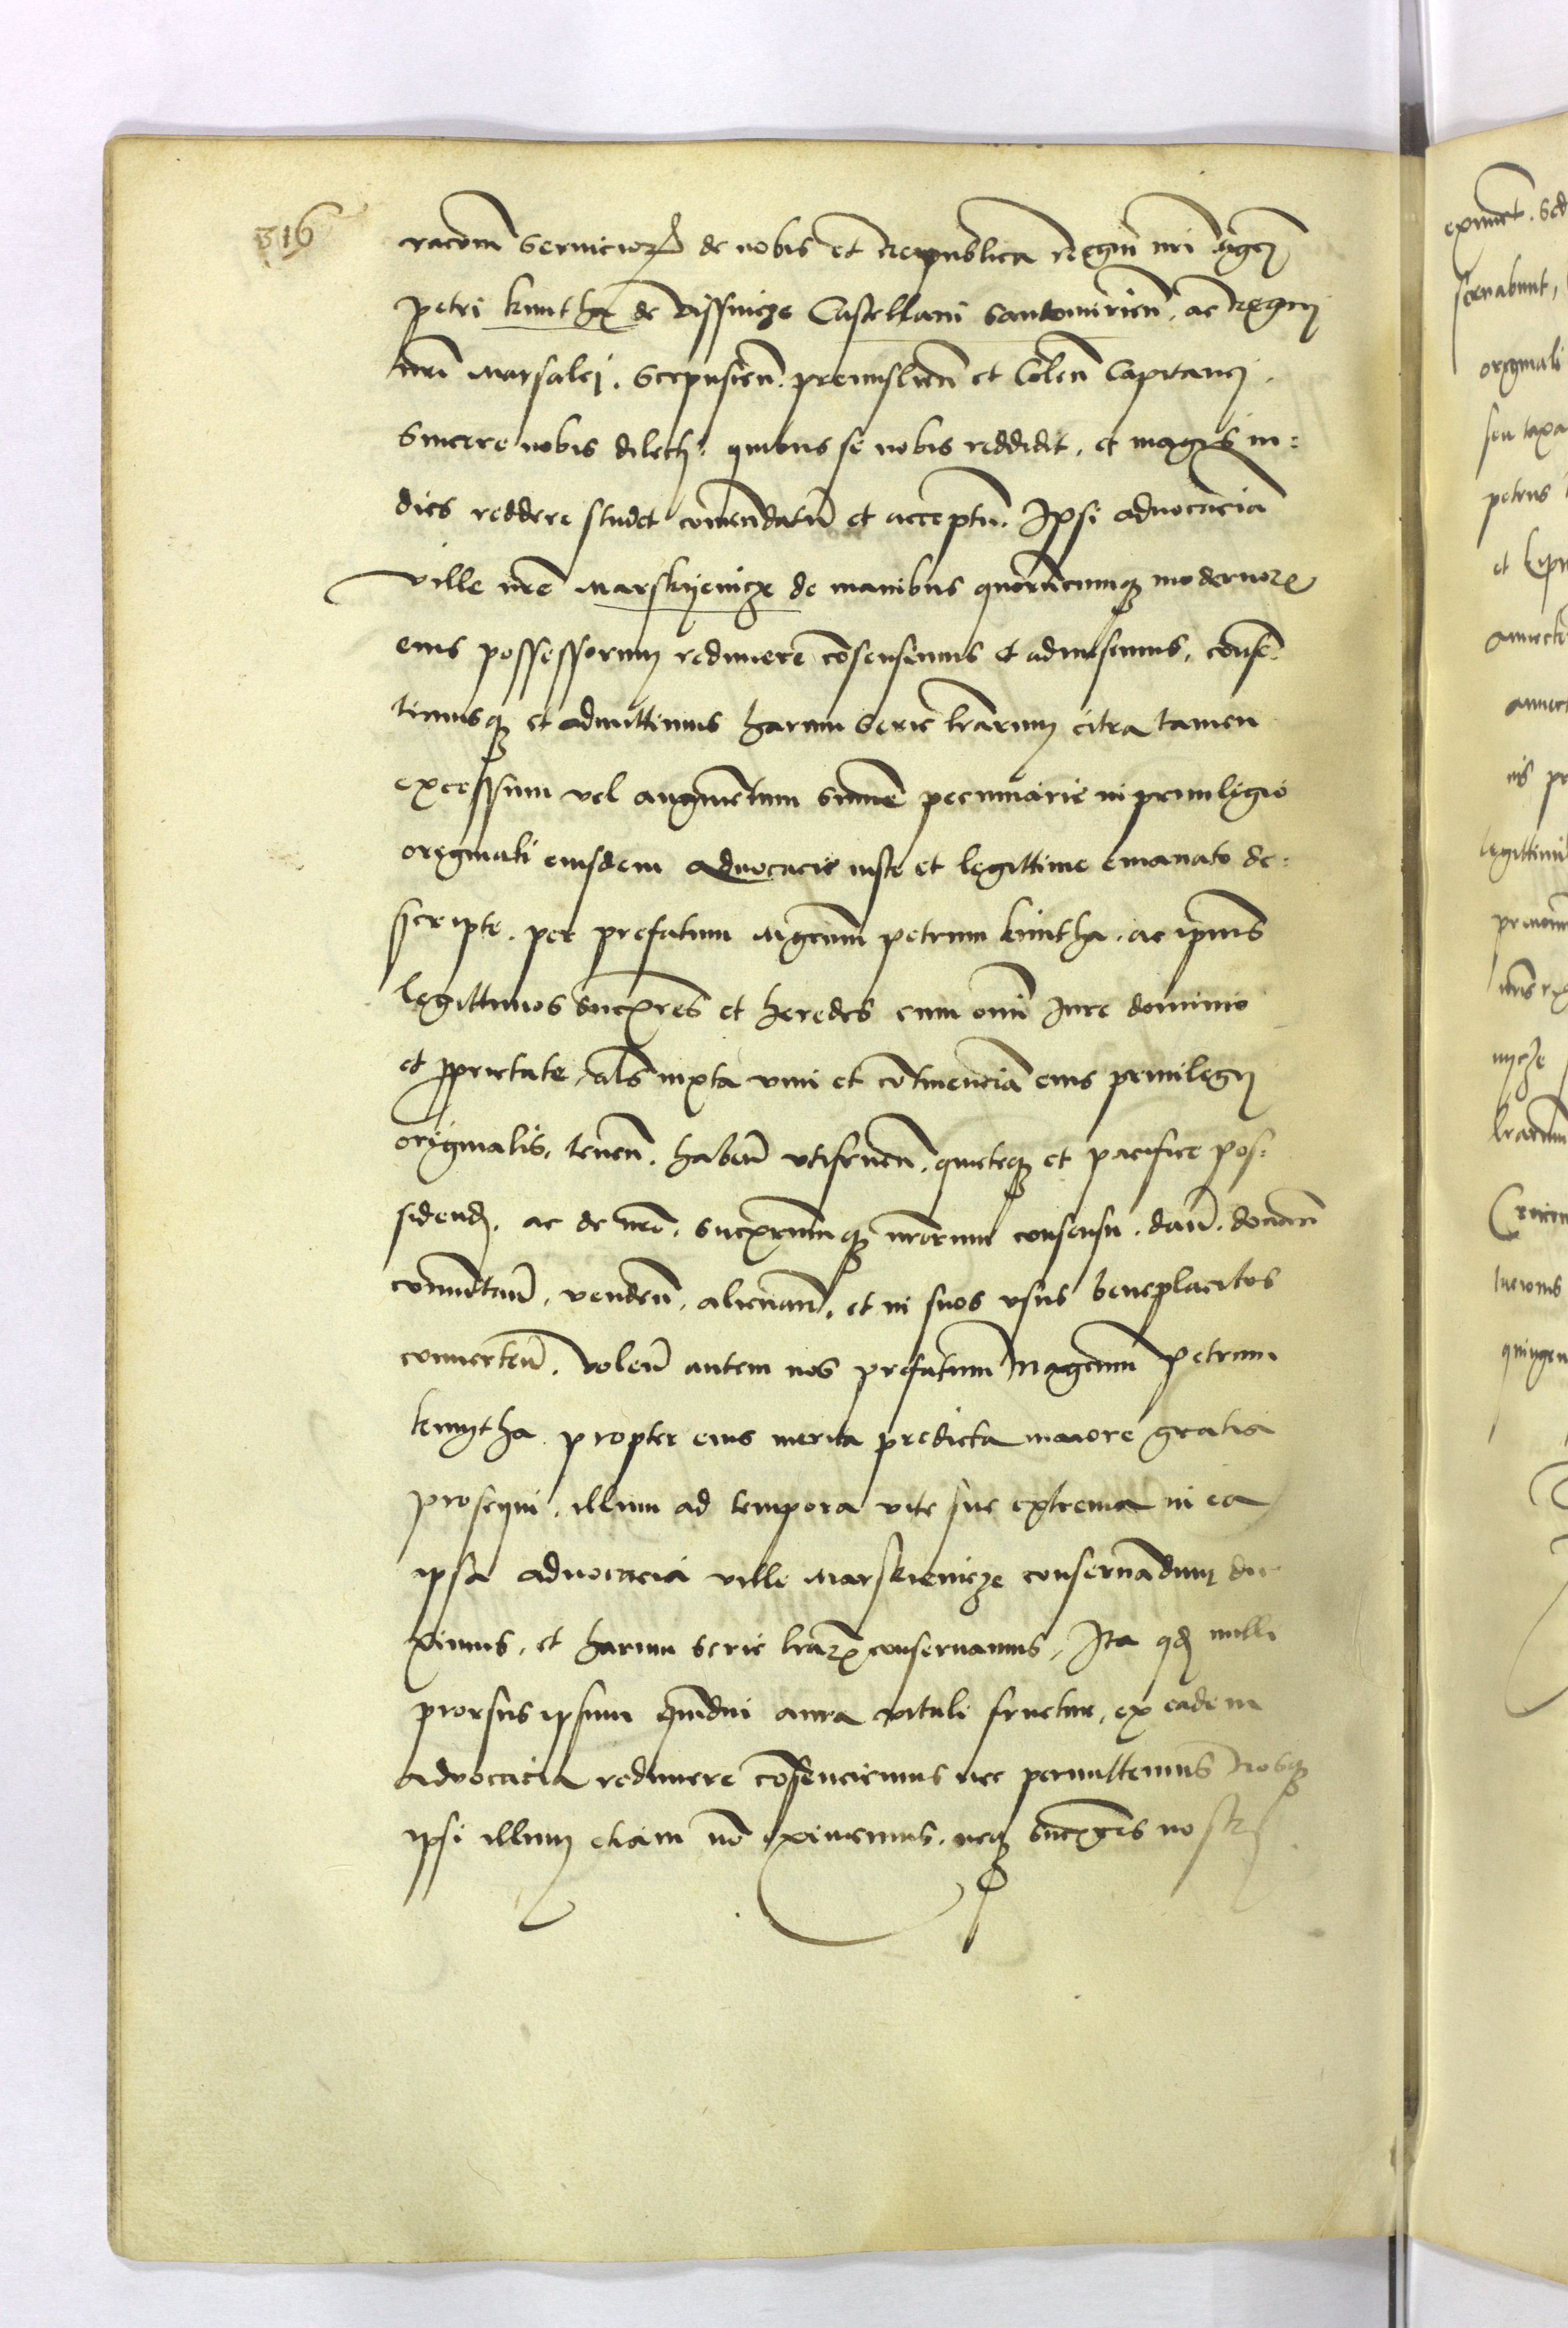 316
racõm Seruicioꝝ de nobis et Republica Regni nri Mgci
Petri kmitha de Vissnicze Castellani Sandomirien̄. ac Regni
nri Marsalci. Scepusien̄. premislien̄ et Colen̄ Capitanei.
Sincere nobis dilecti. quibus se nobis reddidit, et magis in=
dies reddere studet comendatū et acceptū. Ipsi aduocaciā
ville nrē Marskijenicze de manibus quorūcumqꝫ modernoꝝ
eius possessorum redimere cōsensimus et admisimus, consē
timusqꝫ et admittimus harum serie lrārum citra tamen
excessum vel augmētum summē pecuniarie in priuilegio
oreginali eiusdem aduocacie iuste et legittime emanato de=
scripte. per prefatum Mgcum petrum kmitha. ac ipius
legittimos succōres et heredes cum omī Iure dominio
et pprietate, als iuxta vim et cōtinenciā eius priuilegij
originalis, tenen̄. haben̄ vtifruen̄. quieteqꝫ et pacifice pos=
sidend. ac de nrō. succōrumqꝫ nrōrum consensu. dan̄. donan̄
comutan̄. venden̄. alienan̄. et in suos vsus beneplacitos
conuerten̄. Volen̄ autem nos prefatum Magcum Petrum
kmytha propter eius merita predicta maiore gratia
prosequi. illum ad tempora vite sue extrema in ea
ipsa aduocacia ville Marskienicze conseruandum du
ximus, et harum serie lraꝝ conseruamus, Ita qd nulli
prorsus ipsum quādiu aura vitali fruetur, ex eadem
aduocacia redimere cōsenciemus nec permittemus Nosqꝫ
ipsi illum etiam nō eximemus. neqꝫ succōres nostri
eximēt. Sed
originali
seu taxa
petrus
legittimi
nicze